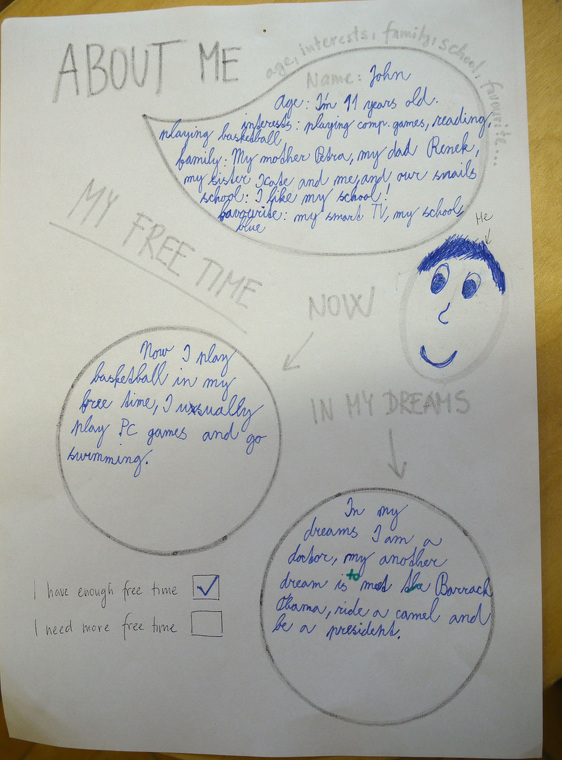 ABOUT ME
age, interests, family, school, favourite...
Name: John
age: I'm 11 years old.
interests: playing comp. games, reading,
playing basketball
family: My mother Petra, my dad Renek,
my sister Kate and me, and our snails
school: I like my school!
favourite: my smart TV, my school,
blue
Me
MY FREE TIME
NOW
Now I play
basketball in my
free time, I usually
play PC games and go
swimming.
IN MY DREAMS
In my
dreams I am a
doctor, my another
dream is to meet Barrack
Obama, ride a camel and
be a president.
I have enough free time
I need more free time